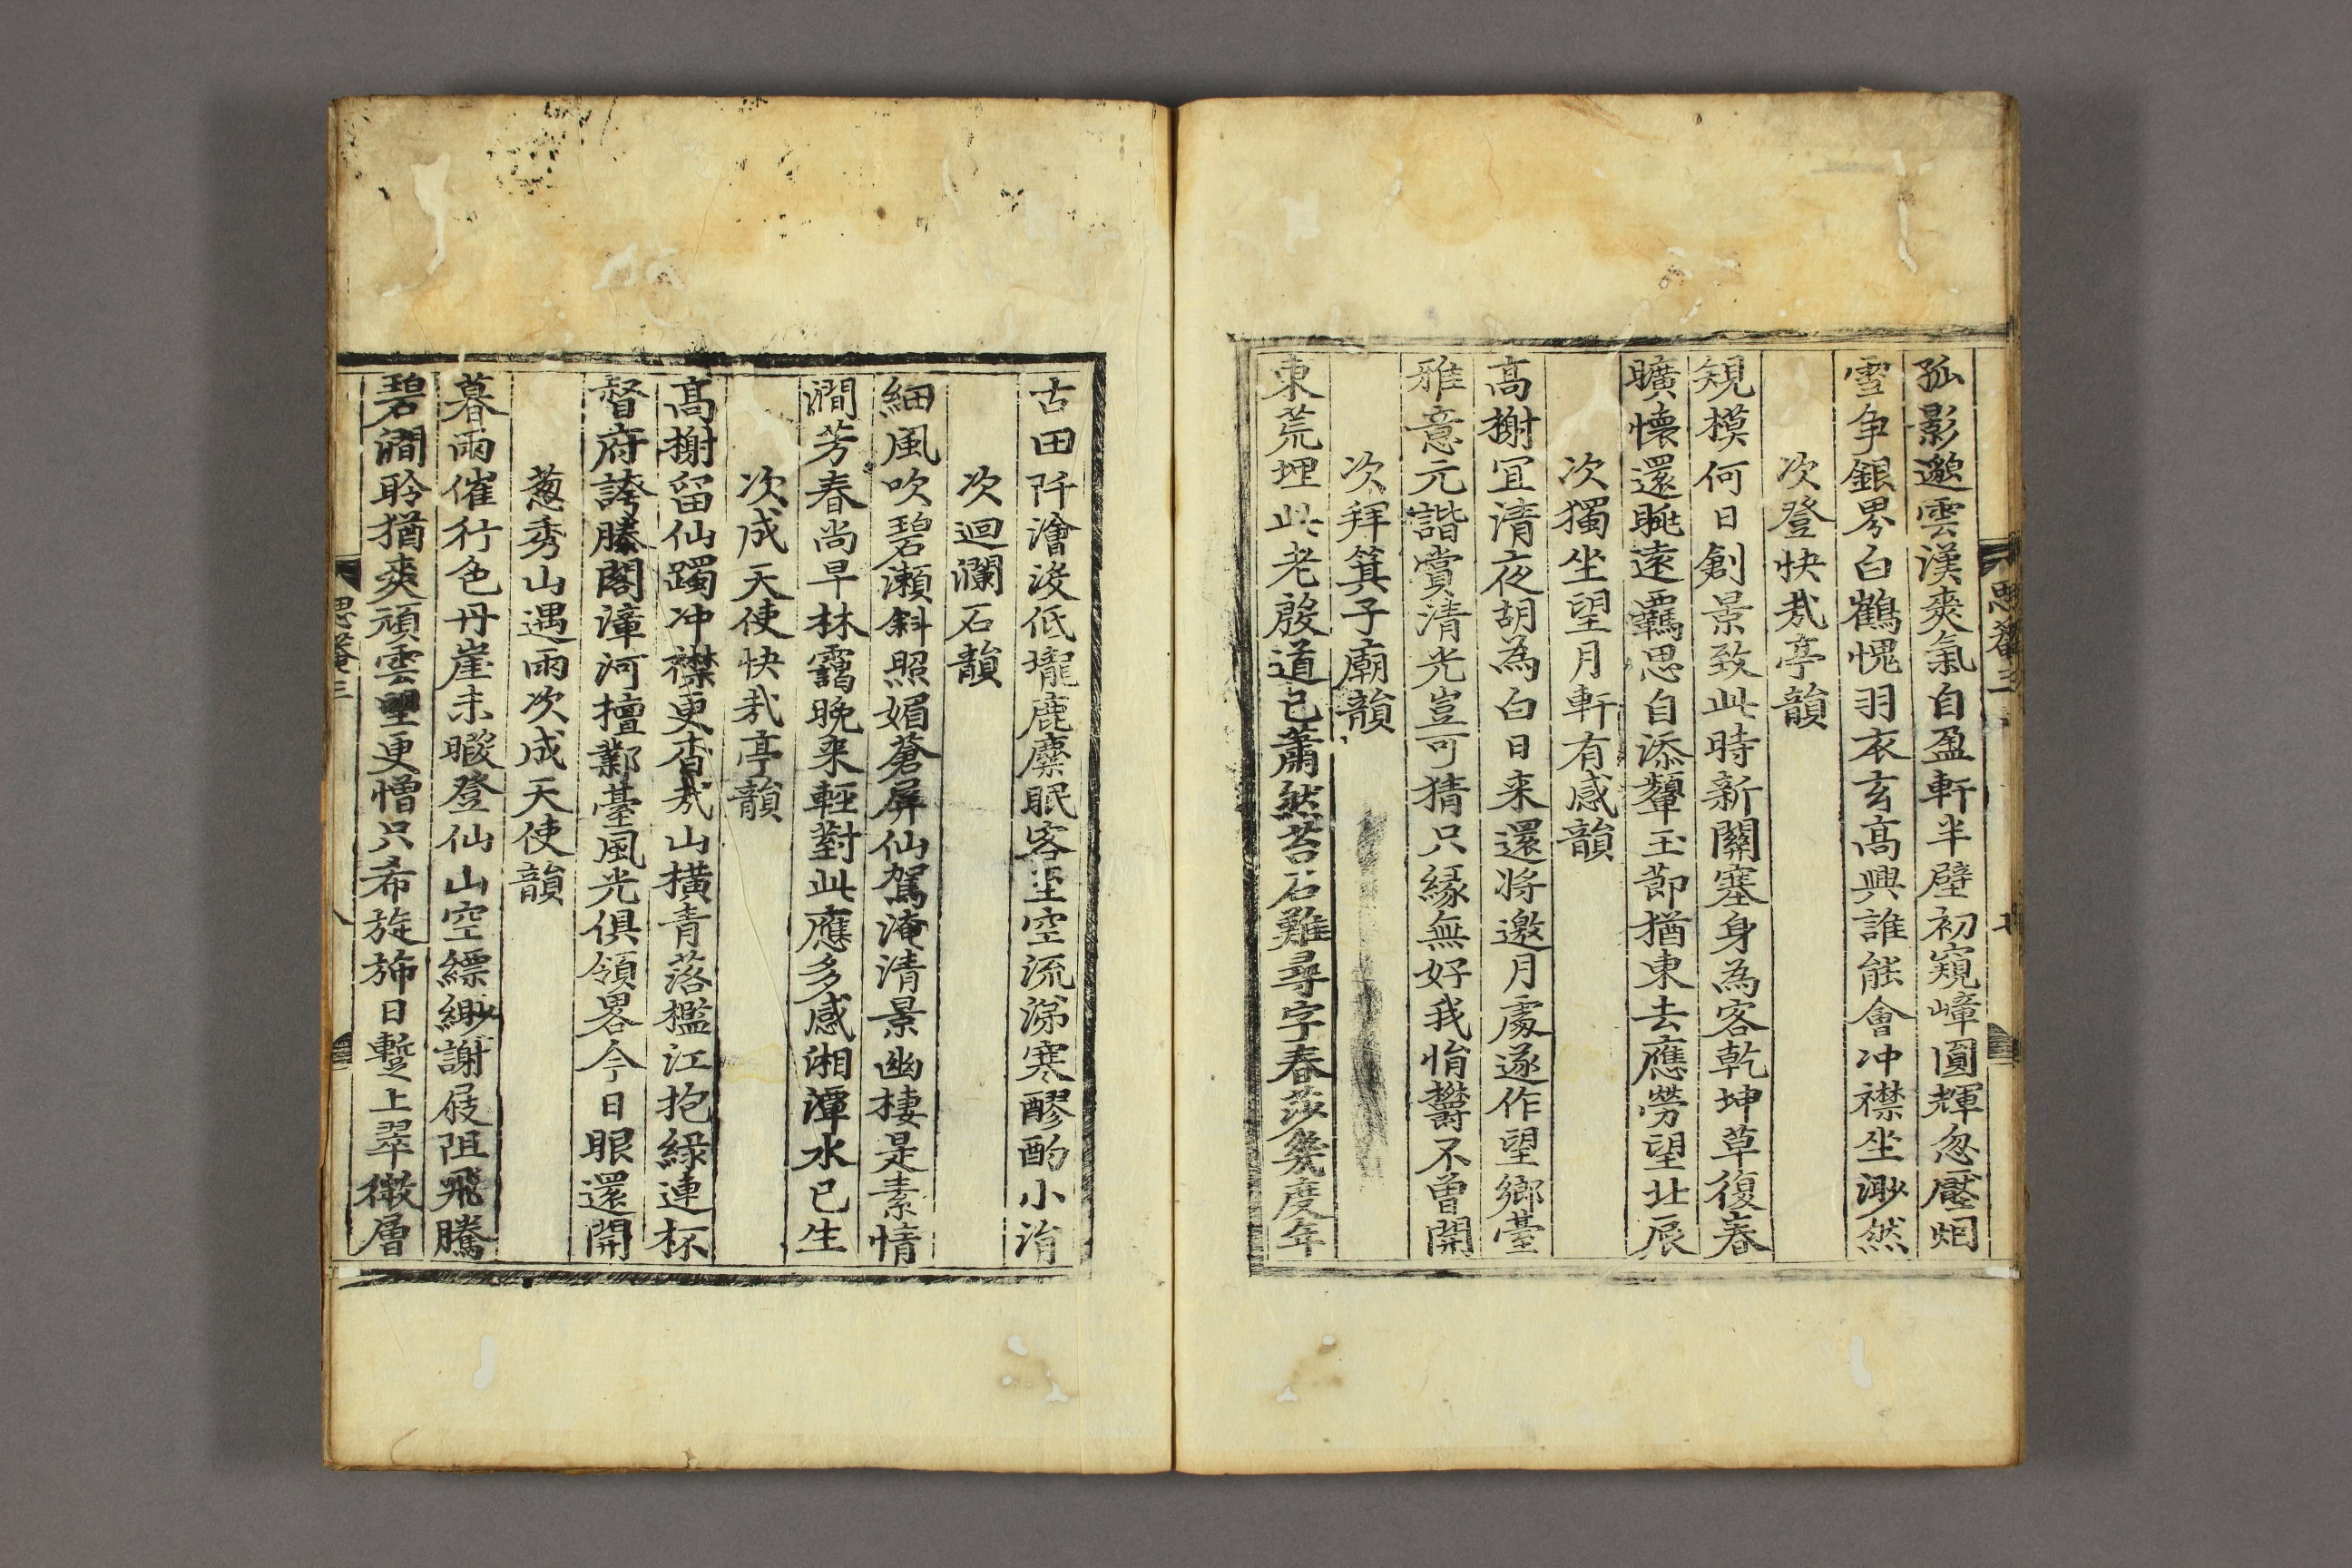 孤影邈雲漢爽氣自盈軒半壁初窺嶂圓輝忽壓烟
雪争銀界白鶴愧羽衣玄高興誰能會冲襟坐渺然
次登快㢤亭韻
䂓模何日創景致此時新關塞身為客乾坤草復春
曠懷還眺遠羈思自添顰玉節猶東去應勞望北辰
次獨坐望月軒有感韻
高榭冝清夜胡為白日来還将邀月處遂作望鄉臺
雅意元諧賞清光豈可猜只緣無好我悁欝不曽開
次拜箕子廟韻
東荒埋此老殷道已蕭然苔石難尋字春莎幾度年
古田阡澮没低壠鹿麋眠客至空流涕寒醪酌小㳙
次迴瀾石韻
細風吹碧瀬斜照媚蒼屏仙駕淹清景幽棲是素情
澗芳春尚早林靄晚来輕對此應多感湘潭水已生
次成天使快㢤亭韻
高榭留仙躅冲襟更杳㢤山横青落檻江抱綠連杯
督府誇滕閣漳河擅鄴臺風光俱領畧今日眼還開
葱秀山遇雨次成天使韻
暮雨催行色丹崖未暇登仙山空縹緲謝屐阻飛騰
碧澗聆猶爽頑雲望更憎只希旋斾日蹔上翠微層
思菴三
七
思菴三
八